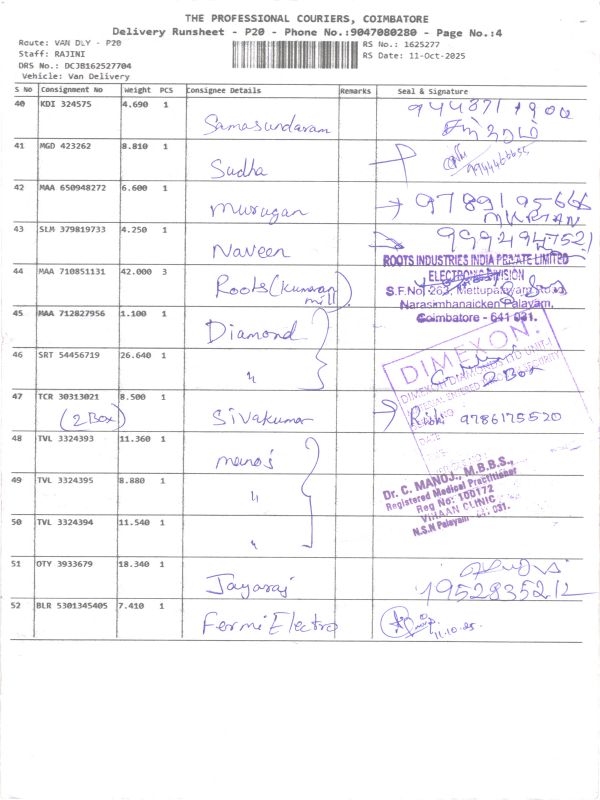 THE PROFESSIONAL COURIERS, COIMBATORE
Delivery Runsheet - P20 - Phone No.:9047080280 - Page No.:4
Route: VAN DLY - P20
Staff: RAJINI
DRS No.: DCJB162527704
Vehicle: Van Delivery
RS No.: 1625277
RS Date: 11-Oct-2025
S No Consignment No Weight PCS Consignee Details Remarks Seal & Signature
40 KDI 324575 4.690 1
Samasundaram
41 MGD 423262 8.810 1
Sudha 9744466655
42 MAA 650948272 6.600 1
Murugan → 9789195666
43 SLM 379819733 4.250 1
Naveen
ROOTS INDUSTRIES INDIA PRIVATE LIMITED
44 MAA 710851131 42.000 3
Roots (Kumaran mill)
ELECTRONIC DIVISION
S.F.No. 263, Mettupalayam Road,
Narasimhanaicken Palayam,
Coimbatore - 641 031.
45 MAA 712827956 1.100 1
Diamond
DIMEXON
46 SRT 54456719 26.640 1
"
2 Box
47 TCR 30313021 8.500 1
(2 Box) Sivakumar → 9786175520
DATE
48 TVL 3324393 11.360 1
manoj
Dr. C. MANOJ., M.B.B.S.,
Registered Medical Practitioner
Reg No: 100172
VIHAAN CLINIC
N.S.N Palayam - 641 031.
49 TVL 3324395 8.880 1
"
50 TVL 3324394 11.540 1
"
51 OTY 3933679 18.340 1
Jayaraj
52 BLR 5301345405 7.410 1
Fermi Electro 11.10.25